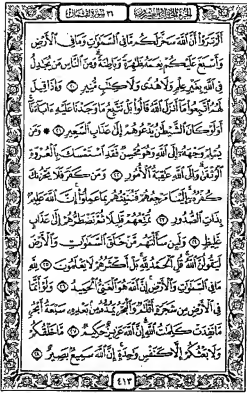 الجزء الحادي والعشرون ٣١ سورة لقمان
أَلَمْ تَرَوْا أَنَّ اللَّهَ سَخَّرَ لَكُم مَّا فِي السَّمَٰوَٰتِ وَمَا فِي الْأَرْضِ
وَأَسْبَغَ عَلَيْكُمْ نِعَمَهُ ظَٰهِرَةً وَبَاطِنَةً وَمِنَ النَّاسِ مَن يُجَٰدِلُ
فِي اللَّهِ بِغَيْرِ عِلْمٍ وَلَا هُدًى وَلَا كِتَٰبٍ مُّنِيرٍ ٢٠ وَإِذَا قِيلَ
لَهُمُ اتَّبِعُوا مَا أَنزَلَ اللَّهُ قَالُوا بَلْ نَتَّبِعُ مَا وَجَدْنَا عَلَيْهِ ءَابَاءَنَا
أَوَلَوْ كَانَ الشَّيْطَٰنُ يَدْعُوهُمْ إِلَىٰ عَذَابِ السَّعِيرِ ٢١ ۞ وَمَن
يُسْلِمْ وَجْهَهُ إِلَى اللَّهِ وَهُوَ مُحْسِنٌ فَقَدِ اسْتَمْسَكَ بِالْعُرْوَةِ
الْوُثْقَىٰ وَإِلَى اللَّهِ عَٰقِبَةُ الْأُمُورِ ٢٢ وَمَن كَفَرَ فَلَا يَحْزُنكَ
كُفْرُهُ إِلَيْنَا مَرْجِعُهُمْ فَنُنَبِّئُهُم بِمَا عَمِلُوا إِنَّ اللَّهَ عَلِيمٌ
بِذَاتِ الصُّدُورِ ٢٣ نُمَتِّعُهُمْ قَلِيلًا ثُمَّ نَضْطَرُّهُمْ إِلَىٰ عَذَابٍ
غَلِيظٍ ٢٤ وَلَئِن سَأَلْتَهُم مَّنْ خَلَقَ السَّمَٰوَٰتِ وَالْأَرْضَ
لَيَقُولُنَّ اللَّهُ قُلِ الْحَمْدُ لِلَّهِ بَلْ أَكْثَرُهُمْ لَا يَعْلَمُونَ ٢٥ لِلَّهِ
مَا فِي السَّمَٰوَٰتِ وَالْأَرْضِ إِنَّ اللَّهَ هُوَ الْغَنِيُّ الْحَمِيدُ ٢٦ وَلَوْ أَنَّمَا
فِي الْأَرْضِ مِن شَجَرَةٍ أَقْلَٰمٌ وَالْبَحْرُ يَمُدُّهُ مِن بَعْدِهِ سَبْعَةُ أَبْحُرٍ
مَّا نَفِدَتْ كَلِمَٰتُ اللَّهِ إِنَّ اللَّهَ عَزِيزٌ حَكِيمٌ ٢٧ مَّا خَلْقُكُمْ
وَلَا بَعْثُكُمْ إِلَّا كَنَفْسٍ وَٰحِدَةٍ إِنَّ اللَّهَ سَمِيعٌ بَصِيرٌ ٢٨
٤١٣